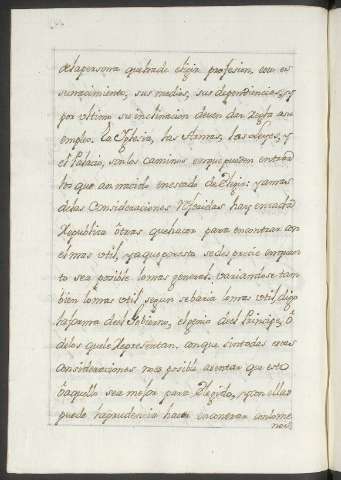 dela persona que ha de eligir profesion, como es
su nacimiento, sus medios, sus dependencias, y
por ultimo su inclinacion deven dar regla a su
empleo. La Iglesia, las Armas, las Leyes, y
el Palacio, son los caminos en que pueden entrar
los que an nacido de Eligir: y a mas
delas Consideraciones referidas hay en cada
Republica otras que hacer para encontrar con
el mas util, y a que por esta se desprecie en quan
to sea posible lo mas general. variandose tam
bien lo mas util segun se baria lo mas util, digo
la forma del Gobierno, el genio del Principe, ô
delos que le Representan, con que sin todas estas
consideraciones no es posible asentar que esto
ô aquello sea mejor para Elegido, y con ellas
puede la prudencia hacer encontrar con lo me
nos